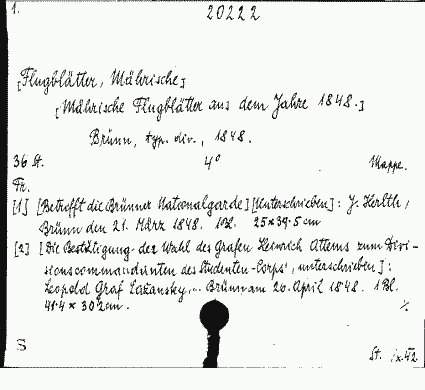 1.
20222
[Flugblätter, Mährische]
[Mährische Flugblätter aus dem Jahre 1848.]
Brünn, typ. div., 1848.
36 St. 4° Mappe.
Tr.
[1] [Betrifft die Brünner Nationalgarde] [Unterschrieben]: J. Herlth,
Brünn den 21. März 1848. 1 Bl. 25 x 39.5 cm
[2] [Die Bestätigung der Wahl des Grafen Heinrich Attems zum Divi-
sionscommandanten des Studenten-Corps, unterschrieben]:
Leopold Graf Lažansky, Brünn am 26. April 1848. 1 Bl.
41.4 x 30.2 cm. ./.
S
St.